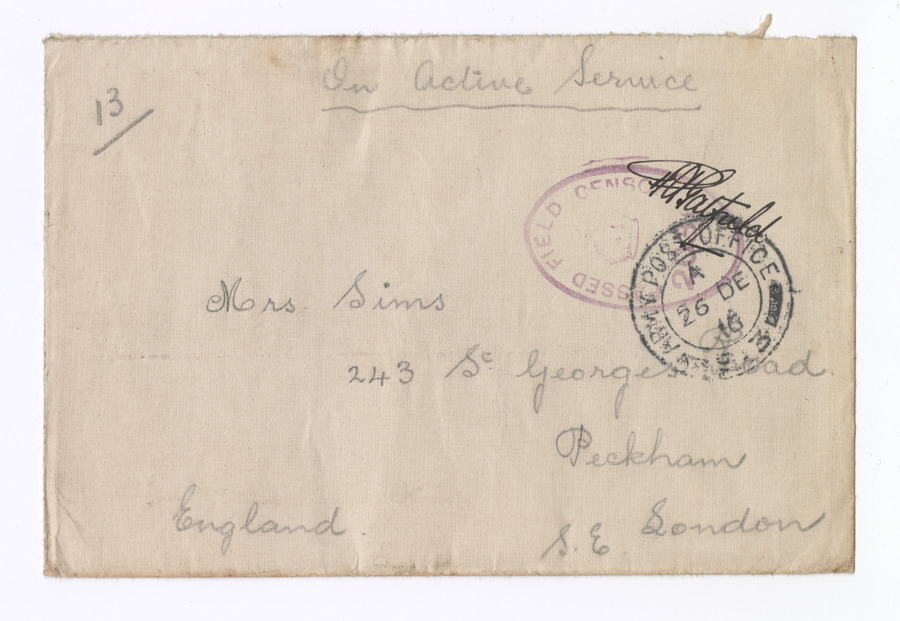 On Active Service
13/
PASSED FIELD CENSOR
ARMY POST OFFICE
A
26 DE
16
S. 3
Mrs Sims
243 St Georges Road
Peckham
S.E. London
England.